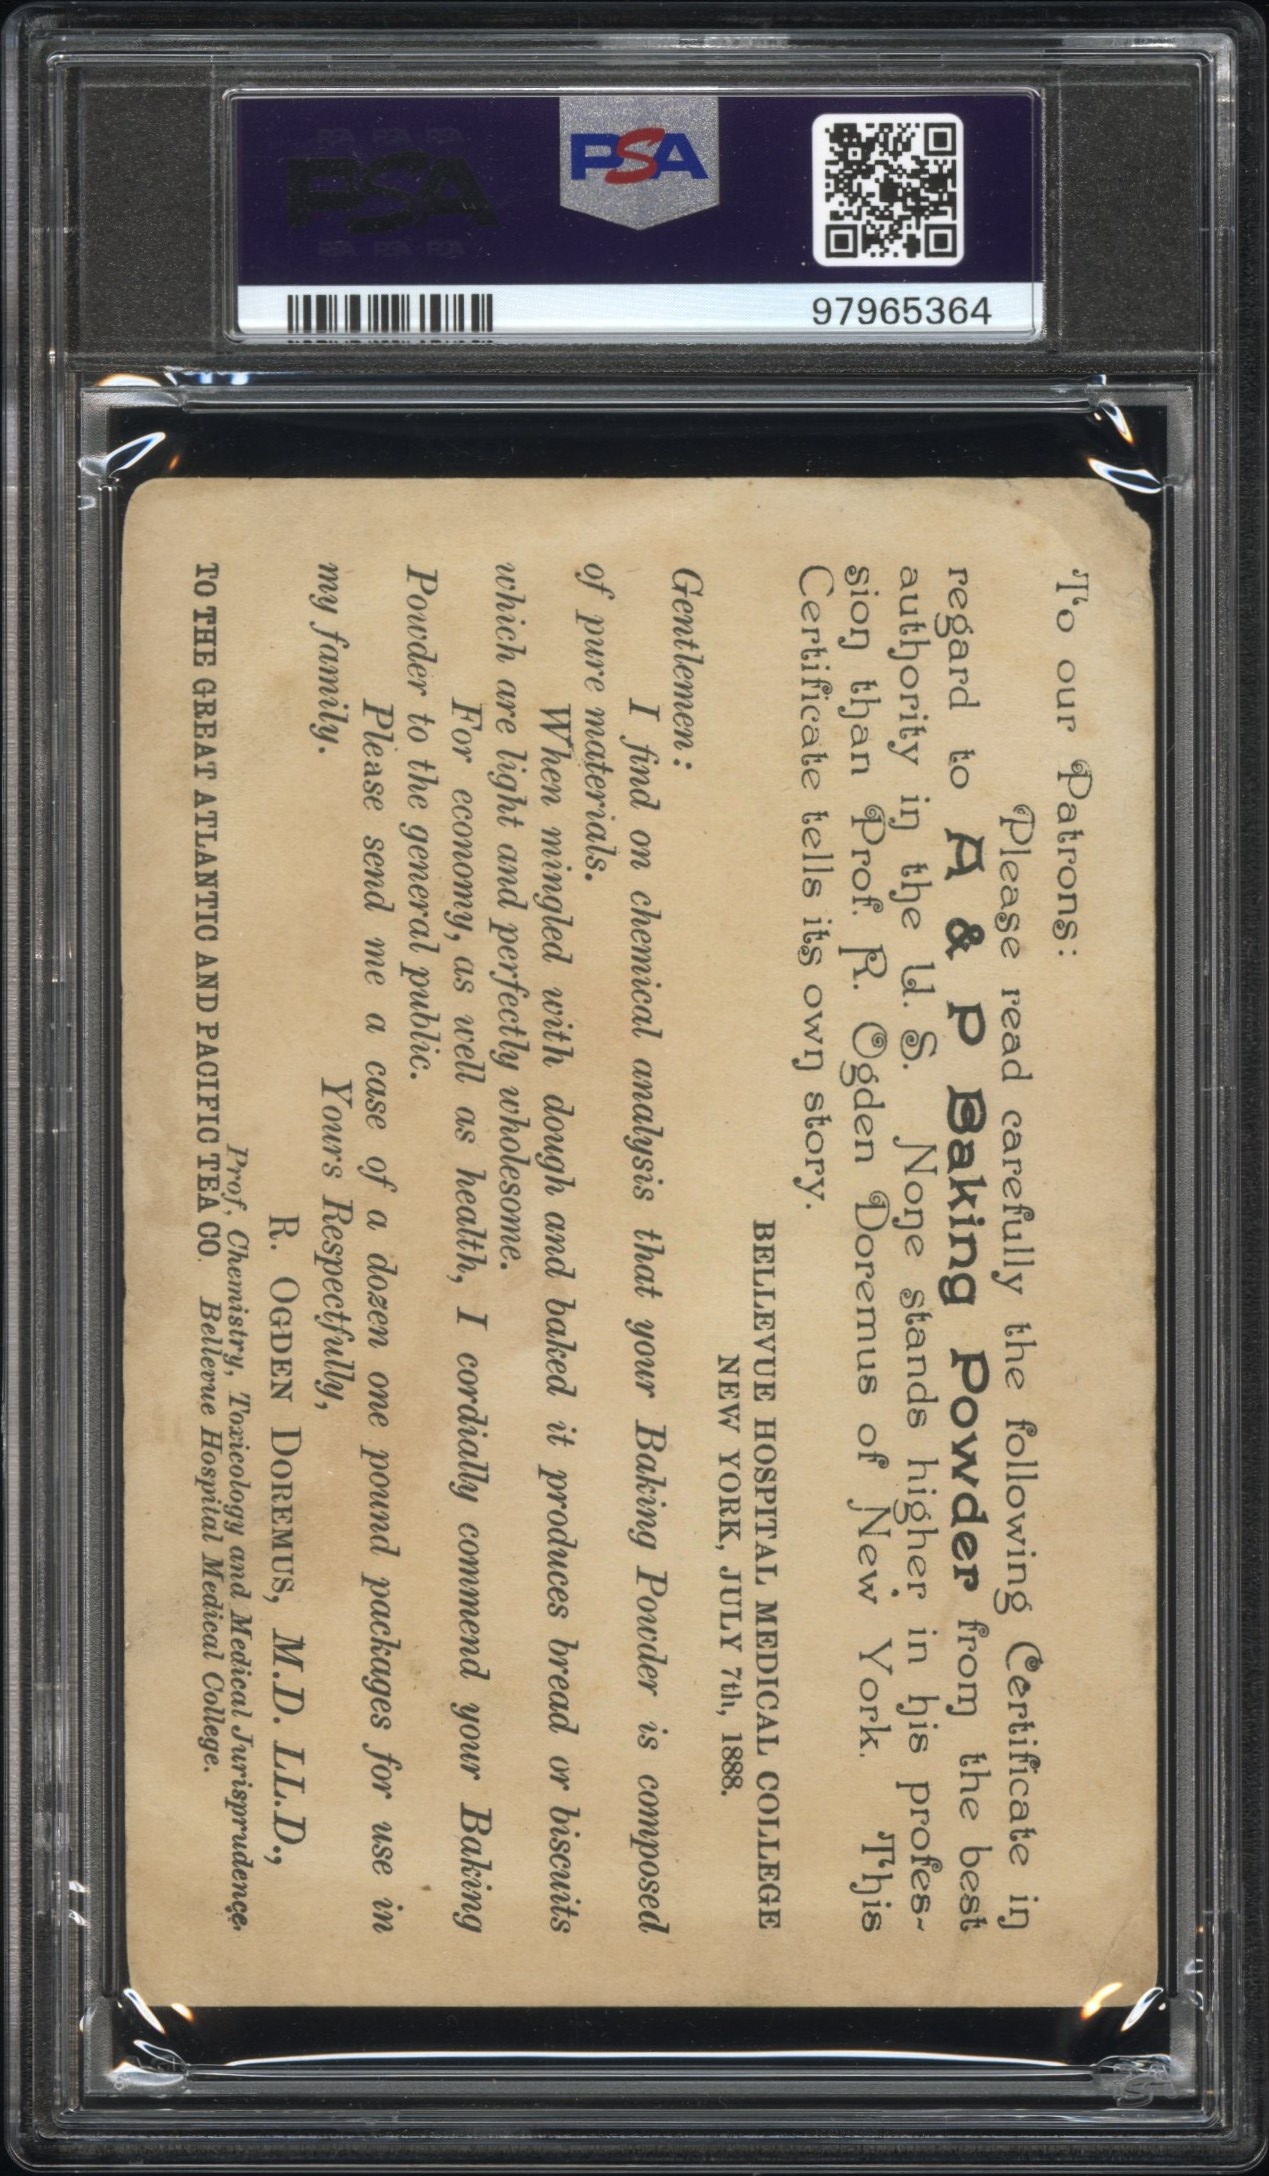 PSA
PSA
97965364
To our Patrons:
Please read carefully the following Certificate in
regard to A & P Baking Powder from the best
authority in the U. S. None stands higher in his profes-
sion than Prof. R. Ogden Doremus of New York. This
Certificate tells its own story.
BELLEVUE HOSPITAL MEDICAL COLLEGE
NEW YORK, JULY 7th, 1888.
Gentlemen:
I find on chemical analysis that your Baking Powder is composed
of pure materials.
When mingled with dough and baked it produces bread or biscuits
which are light and perfectly wholesome.
For economy, as well as health, I cordially commend your Baking
Powder to the general public.
Please send me a case of a dozen one pound packages for use in
my family.
Yours Respectfully,
R. OGDEN DOREMUS, M.D. LL.D.,
Prof, Chemistry, Toxicology and Medical Jurisprudence.
TO THE GREAT ATLANTIC AND PACIFIC TEA CO. Bellevue Hospital Medical College.